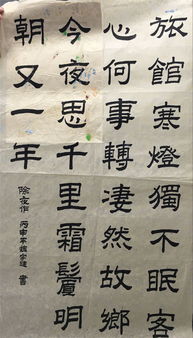 旅館寒燈獨不眠客
心何事轉凄然故鄉
今夜思千里霜鬢明
朝又一年
除夜作 丙申年 書